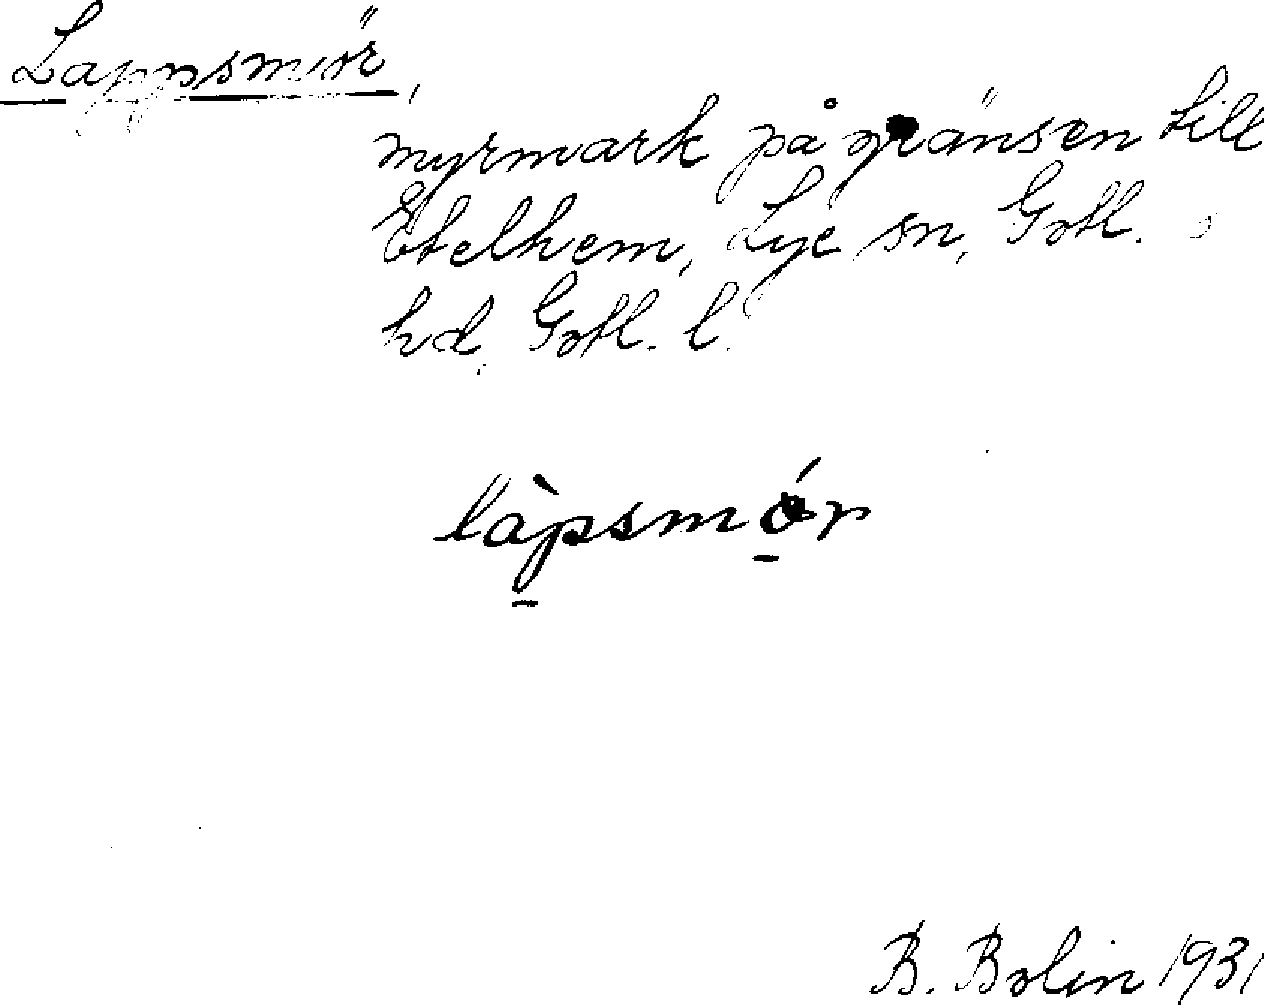 Lappsmör,
myrmark på gränsen till
Etelhem, Lye sn, Gotl. s
hd, Gotl. l.
làpsmór
B. Bolin 1931